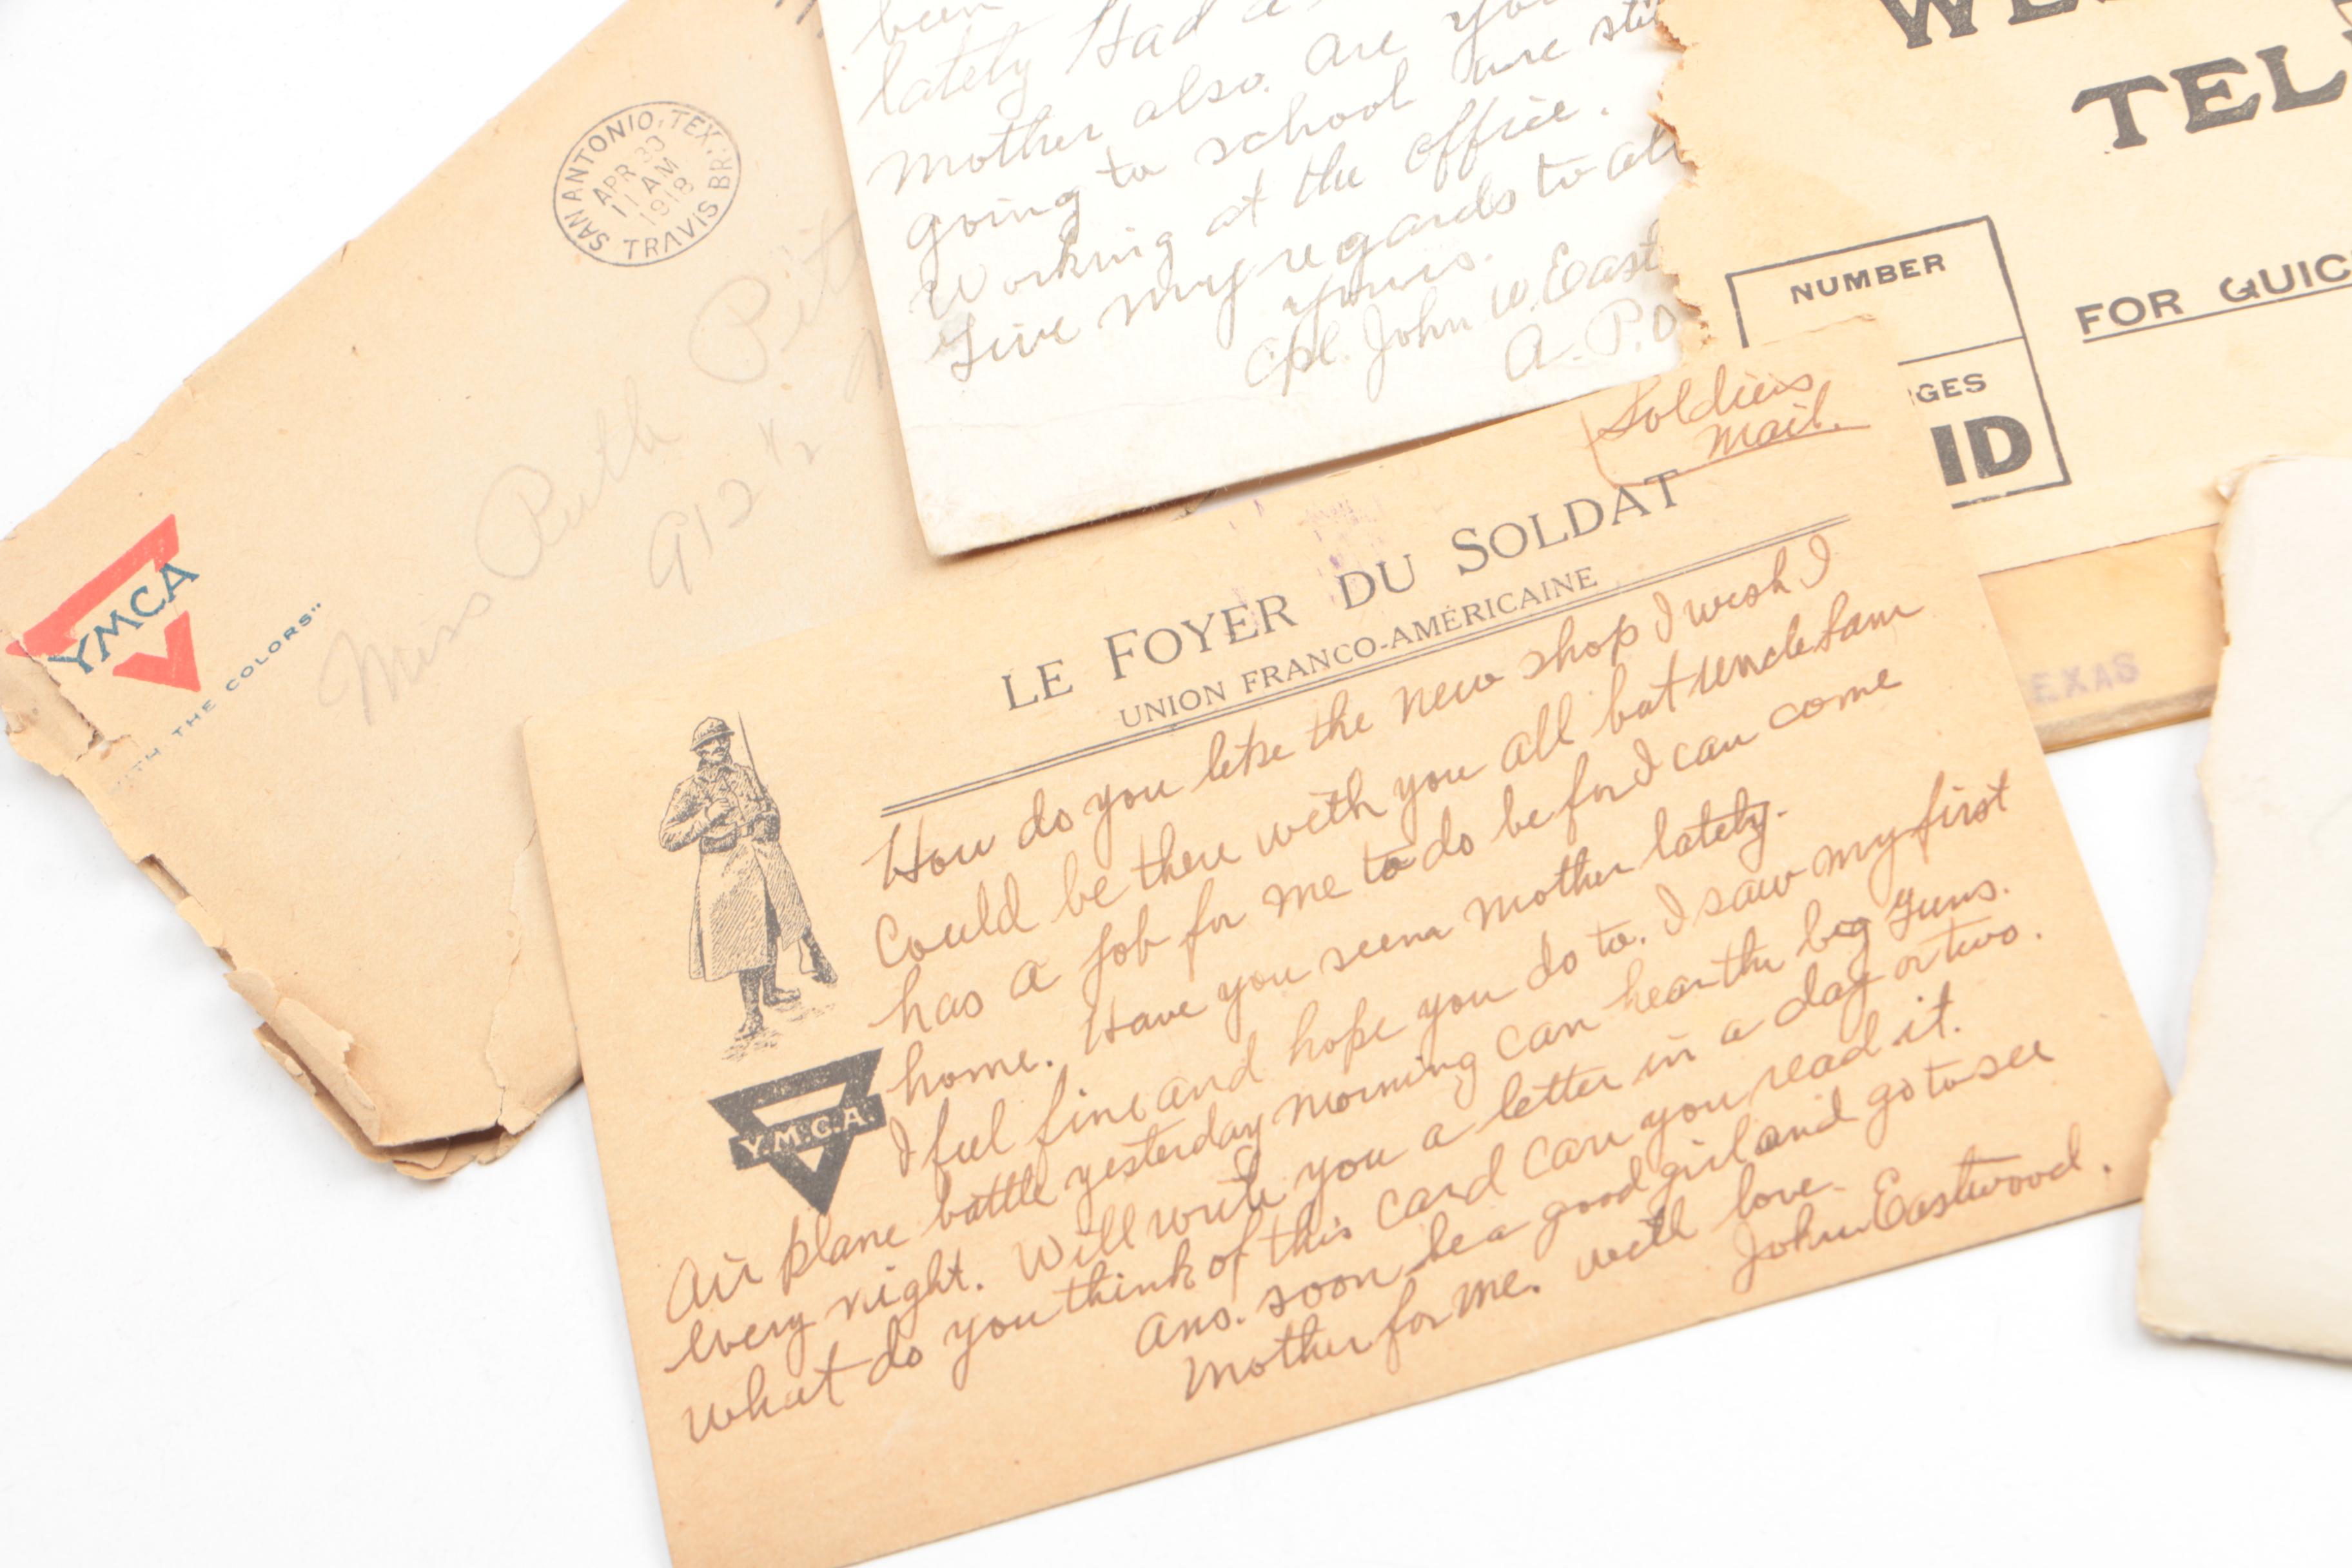 SAN ANTONIO, TEX. TRAVIS BR.
APR 30
11 AM
1918
YMCA
TH THE COLORS"
Miss Ruth
912 1/2
been
lately Had a
mother also. Are you
going to school are sti
Working at the office.
Give my regards to all
yours.
Cpl. John W. East
A. P. O
TEL
NUMBER
GES
ID
FOR QUIC
EXAS
Soldiers
Mail.
LE FOYER DU SOLDAT
UNION FRANCO-AMÉRICAINE
How do you like the new shop I wish I
Could be there with you all but uncle Sam
has a job for me to do be for I can come
home. Have you seem mother lately.
I feel fine and hope you do to. I saw my first
Air plane battle yesterday morning can hear the big guns.
every night. Will write you a letter in a day or two.
What do you think of this card can you read it.
Ans. soon be a good girl and go to see
Mother for me. with love.
John Eastwood.
Y.M.C.A.